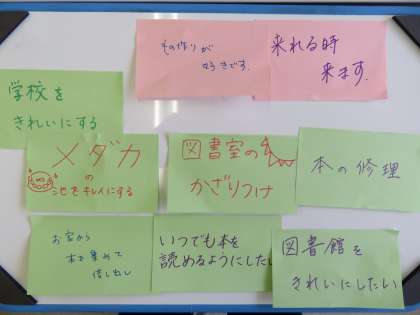 もの作りが
好きです。
来れる時
来ます。
学校を
きれいにする
メダカ
の
池をキレイにする
図書室の
かざりつけ
本の修理
お家から
本を集めて
貸し出し
いつでも本を
読めるようにしたい
図書館を
きれいにしたい